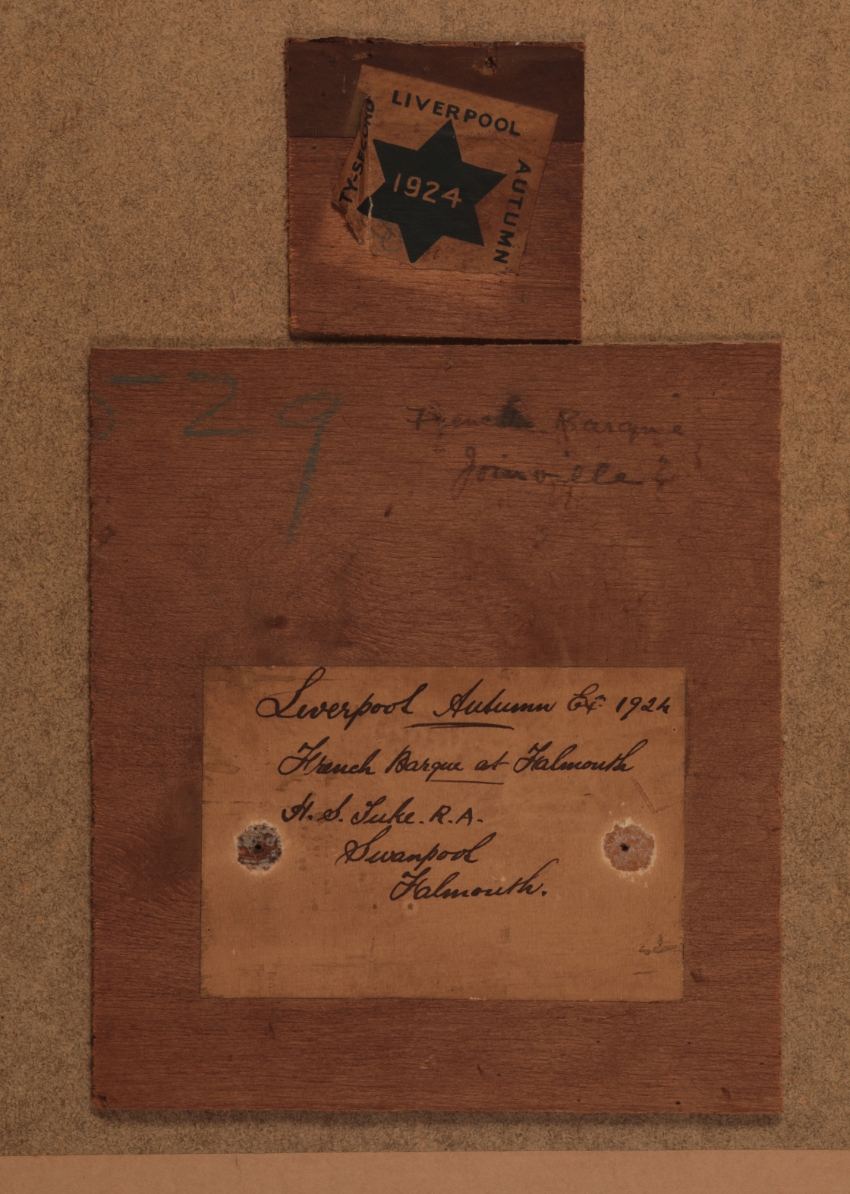 LIVERPOOL
TY-SECOND
1924
AUTUMN
29
French Barque
"Joinville"
Liverpool Autumn Ex. 1924
French Barque at Falmouth
H. S. Tuke. R.A.
Swanpool
Falmouth.